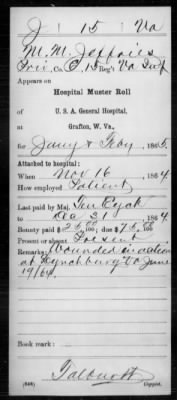 J 15 Va
M. M. Jeffries
Priv, Co. C, 15 Reg't Va Inf
Appears on
Hospital Muster Roll
of U. S. A. General Hospital,
at Grafton, W. Va.,
for Jany & Feby, 1865.
Attached to hospital:
When Nov 16, 1864
How employed Patient
Last paid by Maj. Ten Eyck
to Dec 31, 1864
Bounty paid $25 00/100; due $75 00/100
Present or absent Present
Remarks: Wounded in action
at Lynchburg Va June
19/64.
Book mark:
Talburtt
(648) Copyist.